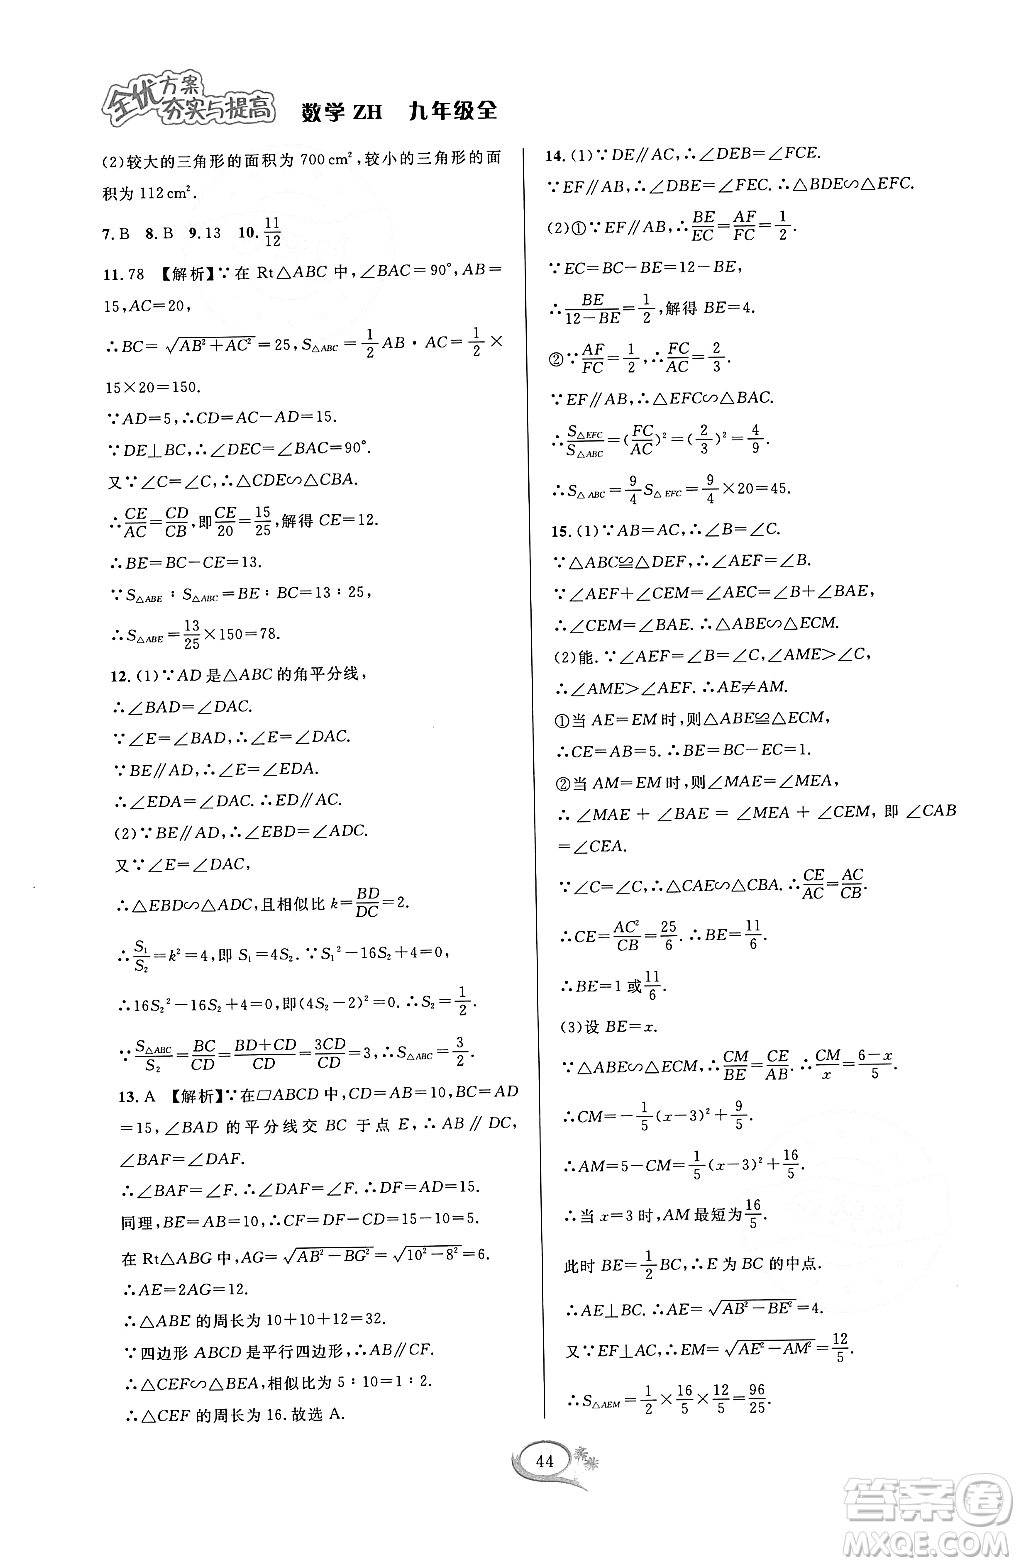 全优方案
夯实与提高 数学 ZH 九年级全
(2)较大的三角形的面积为 700 cm²,较小的三角形的面
积为 112 cm².
7. B 8. B 9. 13 10. 11/12
11. 78 【解析】∵在 Rt△ABC 中,∠BAC=90°,AB=
15,AC=20,
∴BC=√(AB²+AC²)=25,S△ABC=1/2 AB·AC=1/2×
15×20=150.
∵AD=5,∴CD=AC-AD=15.
∵DE⊥BC,∴∠DEC=∠BAC=90°.
又∵∠C=∠C,∴△CDE∽△CBA.
∴CE/AC=CD/CB,即CE/20=15/25,解得 CE=12.
∴BE=BC-CE=13.
∵S△ABE:S△ABC=BE:BC=13:25,
∴S△ABE=13/25×150=78.
12. (1)∵AD 是△ABC 的角平分线,
∴∠BAD=∠DAC.
∵∠E=∠BAD,∴∠E=∠DAC.
∵BE∥AD,∴∠E=∠EDA.
∴∠EDA=∠DAC.∴ED∥AC.
(2)∵BE∥AD,∴∠EBD=∠ADC.
又∵∠E=∠DAC,
∴△EBD∽△ADC,且相似比 k=BD/DC=2.
∴S₁/S₂=k²=4,即 S₁=4S₂.∵S₁²-16S₂+4=0,
∴16S₂²-16S₂+4=0,即(4S₂-2)²=0.∴S₂=1/2.
∵S△ABC/S₂=BC/CD=(BD+CD)/CD=3CD/CD=3,∴S△ABC=3/2.
13. A 【解析】∵在▱ABCD 中,CD=AB=10,BC=AD
=15,∠BAD 的平分线交 BC 于点 E,∴AB∥DC,
∠BAF=∠DAF.
∴∠BAF=∠F.∴∠DAF=∠F.∴DF=AD=15.
同理,BE=AB=10.∴CF=DF-CD=15-10=5.
在 Rt△ABG 中,AG=√(AB²-BG²)=√(10²-8²)=6.
∴AE=2AG=12.
∴△ABE 的周长为 10+10+12=32.
∵四边形 ABCD 是平行四边形,∴AB∥CF.
∴△CEF∽△BEA,相似比为 5:10=1:2.
∴△CEF 的周长为 16.故选 A.
14. (1)∵DE∥AC,∴∠DEB=∠FCE.
∵EF∥AB,∴∠DBE=∠FEC.∴△BDE∽△EFC.
(2)①∵EF∥AB,∴BE/EC=AF/FC=1/2.
∵EC=BC-BE=12-BE,
∴BE/(12-BE)=1/2,解得 BE=4.
②∵AF/FC=1/2,∴FC/AC=2/3.
∵EF∥AB,∴△EFC∽△BAC.
∴S△EFC/S△ABC=(FC/AC)²=(2/3)²=4/9.
∴S△ABC=9/4 S△EFC=9/4×20=45.
15. (1)∵AB=AC,∴∠B=∠C.
∵△ABC≌△DEF,∴∠AEF=∠B.
∵∠AEF+∠CEM=∠AEC=∠B+∠BAE,
∴∠CEM=∠BAE.∴△ABE∽△ECM.
(2)能.∵∠AEF=∠B=∠C,∠AME>∠C,
∴∠AME>∠AEF.∴AE≠AM.
①当 AE=EM 时,则△ABE≌△ECM,
∴CE=AB=5.∴BE=BC-EC=1.
②当 AM=EM 时,则∠MAE=∠MEA,
∴∠MAE+∠BAE=∠MEA+∠CEM,即∠CAB
=∠CEA.
∵∠C=∠C,∴△CAE∽△CBA.∴CE/AC=AC/CB.
∴CE=AC²/CB=25/6.∴BE=11/6.
∴BE=1 或11/6.
(3)设 BE=x.
∵△ABE∽△ECM,∴CM/BE=CE/AB.∴CM/x=(6-x)/5.
∴CM=-1/5(x-3)²+9/5.
∴AM=5-CM=1/5(x-3)²+16/5.
∴当 x=3 时,AM 最短为16/5.
此时 BE=1/2 BC,∴E 为 BC 的中点.
∴AE⊥BC.∴AE=√(AB²-BE²)=4.
又∵EF⊥AC,∴EM=√(AE²-AM²)=12/5.
∴S△AEM=1/2×16/5×12/5=96/25.
44
答案圈
MXQE.COM